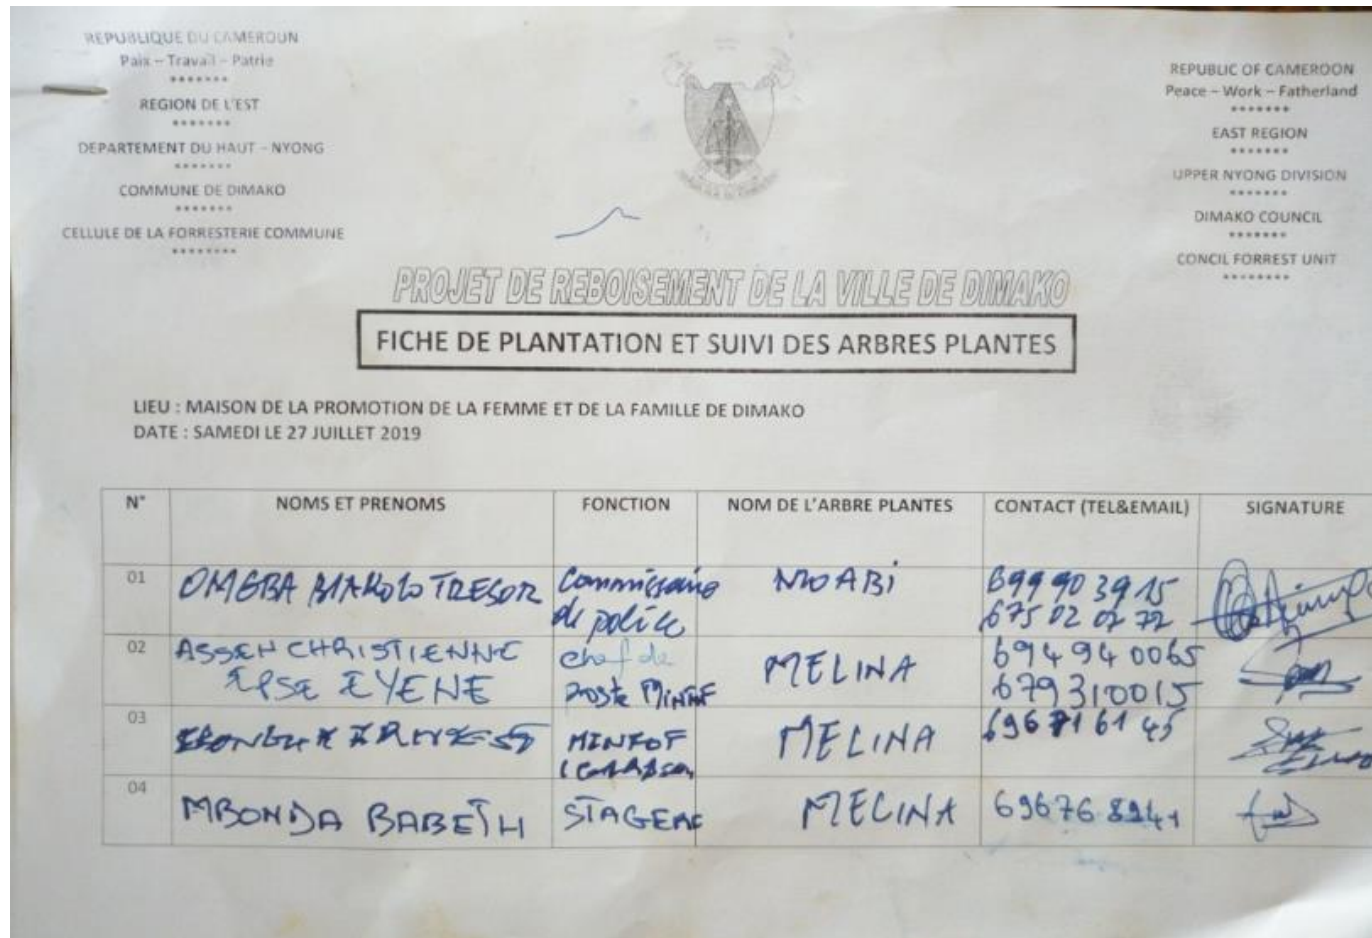 REPUBLIQUE DU CAMEROUN
Paix – Travail – Patrie
*******
REGION DE L'EST
*******
DEPARTEMENT DU HAUT – NYONG
*******
COMMUNE DE DIMAKO
*******
CELLULE DE LA FORRESTERIE COMMUNE
********
REPUBLIC OF CAMEROON
Peace – Work – Fatherland
*******
EAST REGION
*******
UPPER NYONG DIVISION
*******
DIMAKO COUNCIL
*******
CONCIL FORREST UNIT
********
PROJET DE REBOISEMENT DE LA VILLE DE DIMAKO
FICHE DE PLANTATION ET SUIVI DES ARBRES PLANTES
LIEU : MAISON DE LA PROMOTION DE LA FEMME ET DE LA FAMILLE DE DIMAKO
DATE : SAMEDI LE 27 JUILLET 2019
N° NOMS ET PRENOMS FONCTION NOM DE L'ARBRE PLANTES CONTACT (TEL&EMAIL) SIGNATURE
01 TRESOR Commissaire MOABI 699903915
de police
02 ASSEN CHRISTIENNE chef de MELINA 694940065
EPSE EYENE poste 679310015
03 MELINA
04 MBONDA BABETH MELINA